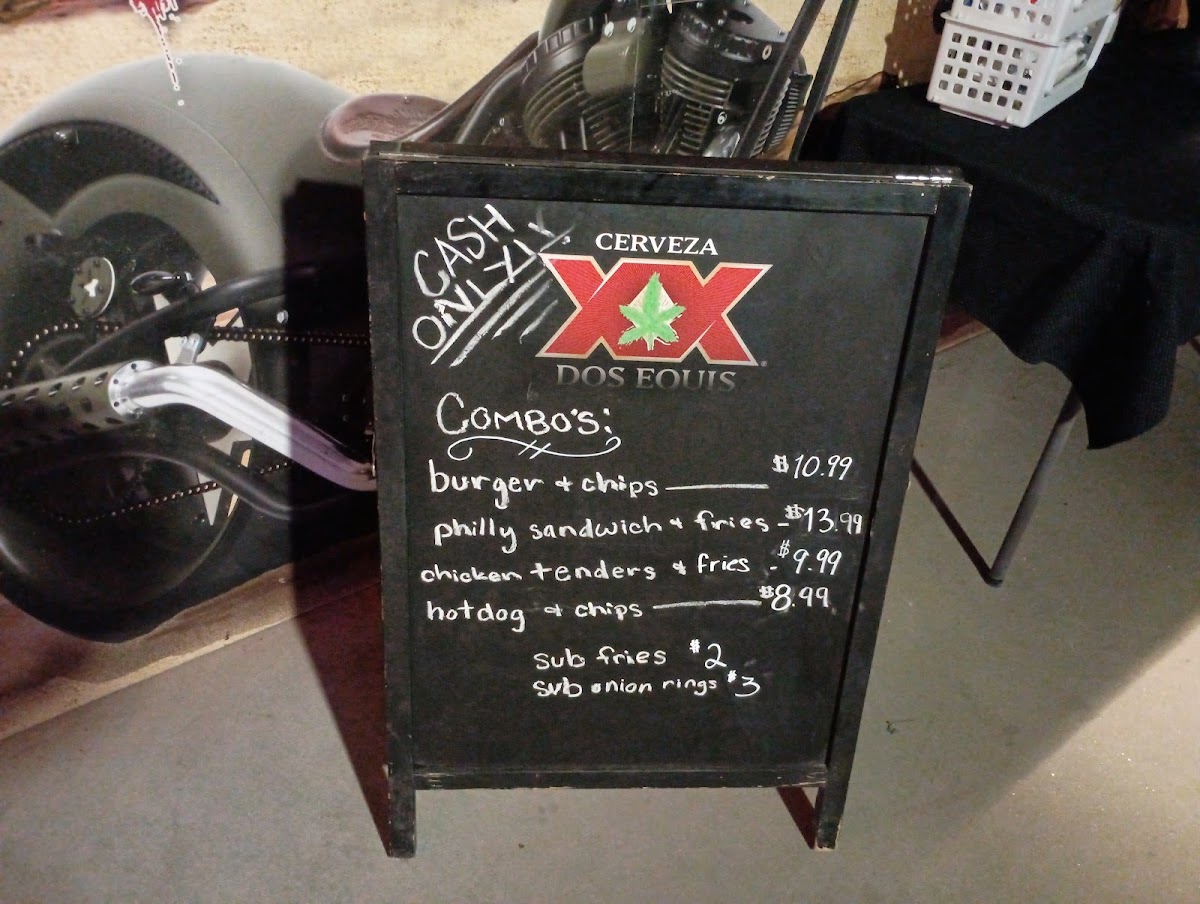 CASH
ONLY
CERVEZA
XX
DOS EQUIS
COMBO'S:
burger & chips $10.99
philly sandwich & fries - $13.99
chicken tenders & fries - $9.99
hotdog & chips $8.99
sub fries $2
sub onion rings $3